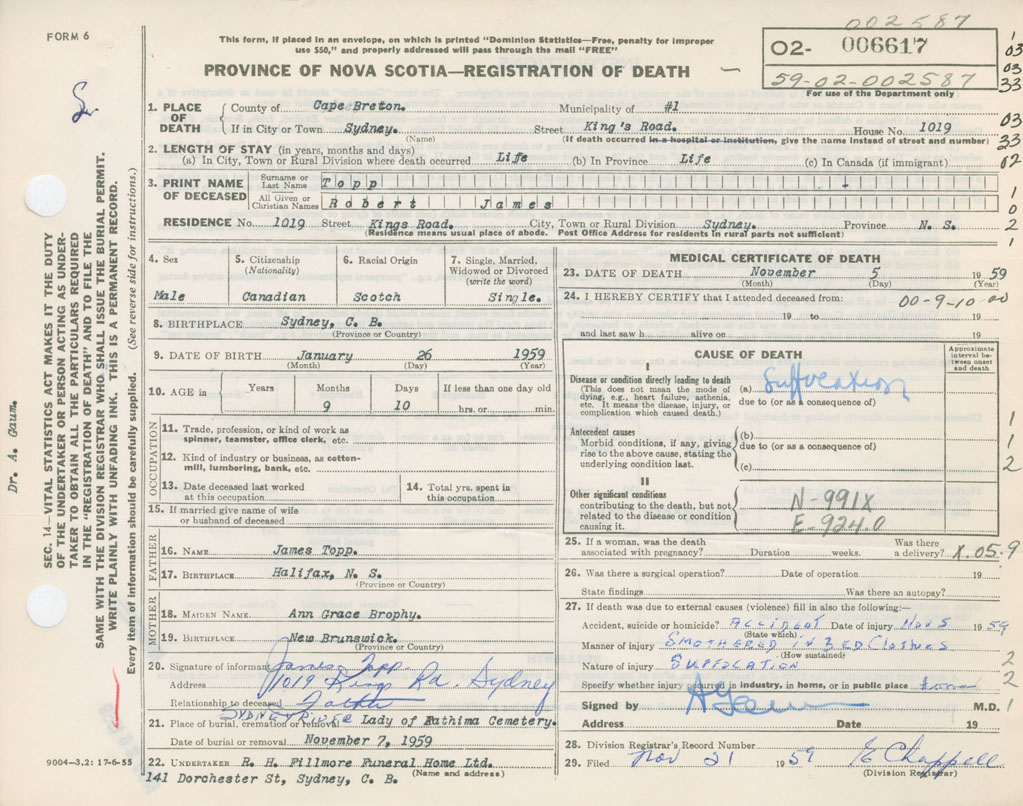 FORM 6
This form, if placed in an envelope, on which is printed "Dominion Statistics—Free, penalty for improper
use $50," and properly addressed will pass through the mail "FREE"
PROVINCE OF NOVA SCOTIA—REGISTRATION OF DEATH
002587
02- 006617
59-02-002587
For use of the Department only
1
03
03
33
1. PLACE OF DEATH County of Cape Breton. Municipality of #1
If in City or Town Sydney. Street King's Road. House No. 1019
(Name) (If death occurred in a hospital or institution, give the name instead of street and number)
03
33
2. LENGTH OF STAY (in years, months and days)
(a) In City, Town or Rural Division where death occurred Life (b) In Province Life (c) In Canada (if immigrant)
02
3. PRINT NAME OF DECEASED
Surname or Last Name Topp
All Given or Christian Names Robert James
1
0
RESIDENCE No. 1019 Street Kings Road. City, Town or Rural Division Sydney. Province N. S.
2
(Residence means usual place of abode. Post Office Address for residents in rural parts not sufficient)
1
4. Sex
Male
5. Citizenship (Nationality)
Canadian
6. Racial Origin
Scotch
7. Single, Married, Widowed or Divorced (write the word)
Single.
8. BIRTHPLACE Sydney, C. B.
(Province or Country)
9. DATE OF BIRTH January 26 1959
(Month) (Day) (Year)
10. AGE in Years Months Days If less than one day old
9 10 hrs. or min.
OCCUPATION
11. Trade, profession, or kind of work as
spinner, teamster, office clerk, etc.
12. Kind of industry or business, as cotton-
mill, lumbering, bank, etc.
13. Date deceased last worked
at this occupation
14. Total yrs. spent in
this occupation
15. If married give name of wife
or husband of deceased
FATHER
16. NAME James Topp.
17. BIRTHPLACE Halifax, N. S.
(Province or Country)
MOTHER
18. MAIDEN NAME. Ann Grace Brophy.
19. BIRTHPLACE New Brunswick.
(Province or Country)
20. Signature of informant James Topp.
Address 1019 King Rd. Sydney
Relationship to deceased Father
SYDNEY RIVER
21. Place of burial, cremation or removal Lady of Fathima Cemetery.
Date of burial or removal November 7, 1959
22. UNDERTAKER R. H. Fillmore Funeral Home Ltd.
141 Dorchester St, Sydney, C. B. (Name and address)
9004-3.2: 17-6-55
MEDICAL CERTIFICATE OF DEATH
23. DATE OF DEATH November 5 1959
(Month) (Day) (Year)
24. I HEREBY CERTIFY that I attended deceased from: 00-9-10-00
19 to 19
and last saw h alive on 19
CAUSE OF DEATH
Approximate interval between onset and death
I
Disease or condition directly leading to death (a) Suffocation
(This does not mean the mode of dying, e.g., heart failure, asthenia, etc. It means the disease, injury, or complication which caused death.)
due to (or as a consequence of)
Antecedent causes
Morbid conditions, if any, giving rise to the above cause, stating the underlying condition last.
(b)
due to (or as a consequence of)
(c)
1
1
2
II
Other significant conditions
contributing to the death, but not
related to the disease or condition
causing it.
N-991X
E-924.0
25. If a woman, was the death
associated with pregnancy? Duration weeks. Was there a delivery? X.05-9
26. Was there a surgical operation? Date of operation 19
State findings Was there an autopsy?
27. If death was due to external causes (violence) fill in also the following:—
Accident, suicide or homicide? ACCIDENT Date of injury NOV 5 1959
(State which)
Manner of injury SMOTHERED IN BED CLOTHES
(How sustained)
Nature of injury SUFFOCATION
2
Specify whether injury occurred in industry, in home, or in public place home
2
Signed by A Gaum M.D.
1
Address Date 19
28. Division Registrar's Record Number
29. Filed Nov 21 1959 E Chappell
(Division Registrar)
Dr. A. Gaum.
SEC. 14—VITAL STATISTICS ACT MAKES IT THE DUTY
OF THE UNDERTAKER OR PERSON ACTING AS UNDER-
TAKER TO OBTAIN ALL THE PARTICULARS REQUIRED
IN THE "REGISTRATION OF DEATH" AND TO FILE THE
SAME WITH THE DIVISION REGISTRAR WHO SHALL ISSUE THE BURIAL PERMIT.
WRITE PLAINLY WITH UNFADING INK. THIS IS A PERMANENT RECORD.
Every item of information should be carefully supplied. (See reverse side for instructions.)